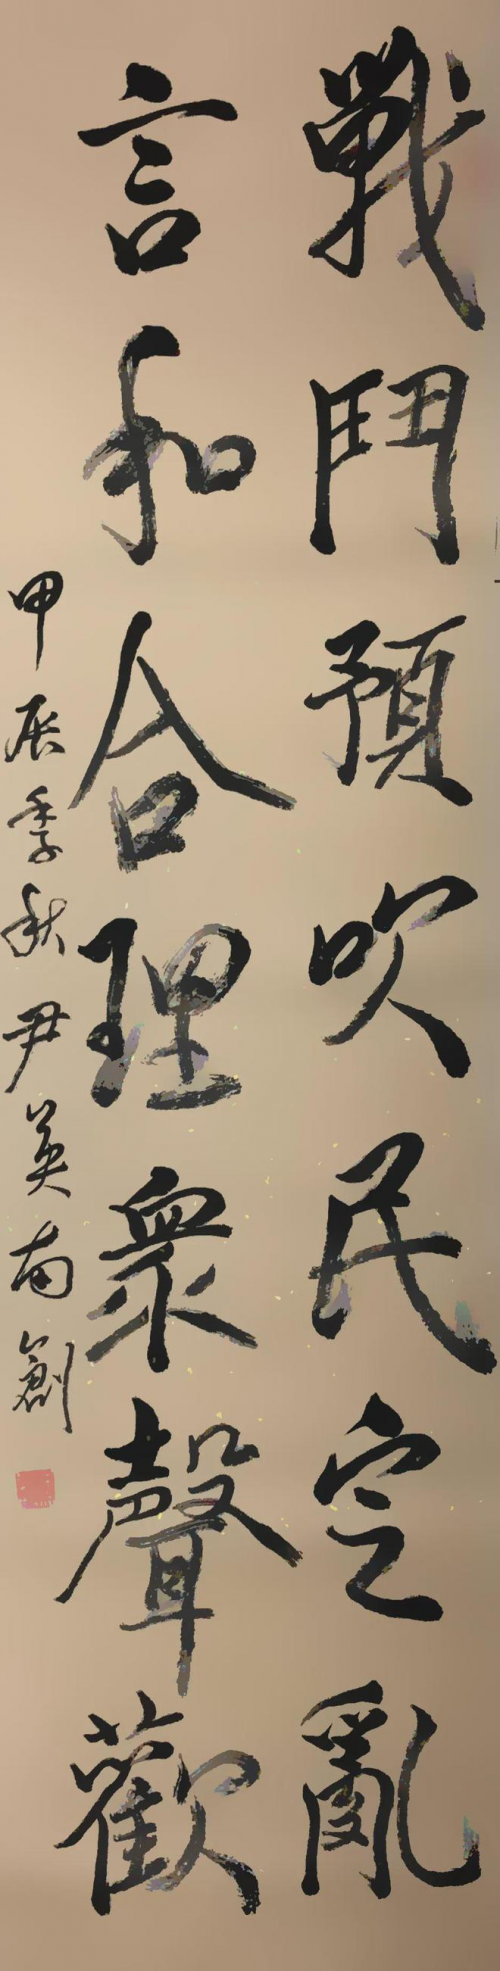 戰鬥預吹民定亂
言和合理衆聲歡
甲辰季秋尹英南創